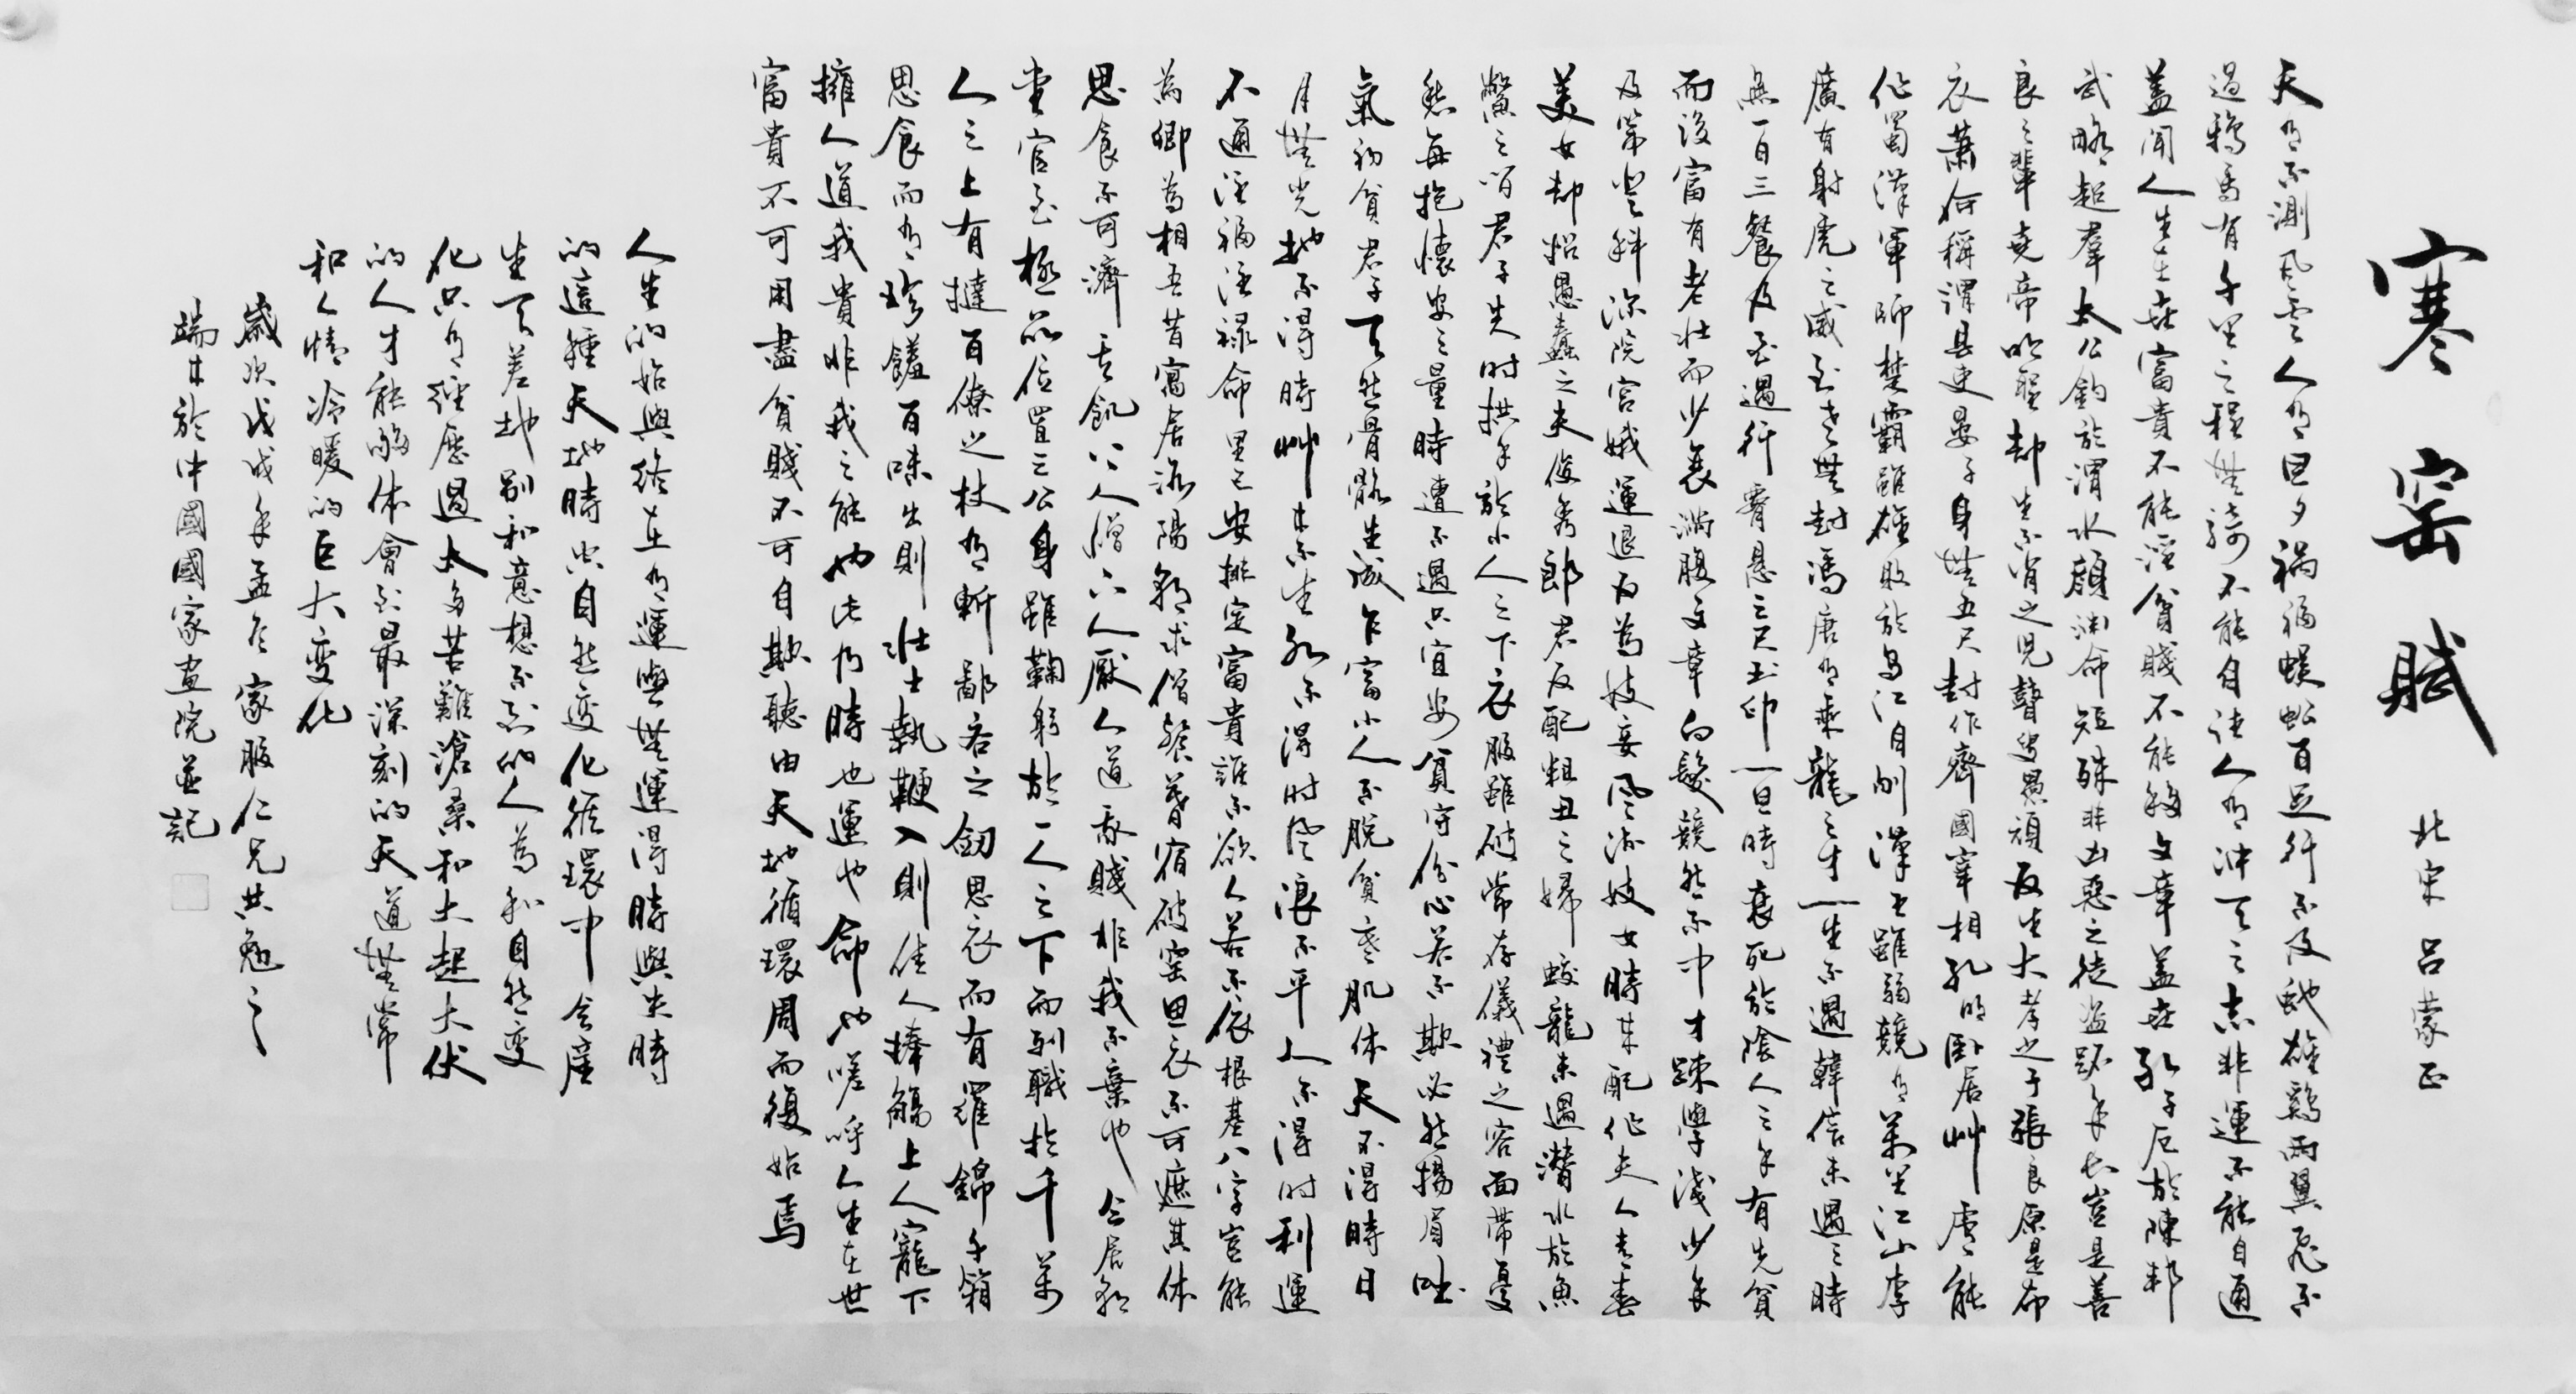 寒窑賦
北宋呂蒙正
天有不測風雲人有旦夕禍福蜈蚣百足行不及蛇雄鷄兩翼飛不
過鴉馬有千里之程無騎不能自往人有沖天之志非運不能自通
蓋聞人生在世富貴不能淫貧賤不能移文章蓋世孔子厄於陳邦
武略超羣太公釣於渭水顏淵命短殊非凶惡之徒盜跖年長豈是善
良之輩堯帝明聖却生不肖之児瞽叟愚頑反生大孝之子張良原是布
衣蕭何稱謂县吏晏子身無五尺封作齊國宰相孔明卧居艸廬能
作蜀漢軍師楚霸雖雄敗於烏江自刎漢王雖弱競有萬里江山李
廣有射虎之威到老無封馮唐有乘龍之才一生不遇韓信未遇之時
無一日三餐及至遇行腰懸三尺玉印一旦時衰死於陰人之手有先貧
而後富有老壯而少衰满腹文章白髮競然不中才疎學淺少年
及第登科深院宮娥運退反為妓妾風流妓女時來配作夫人青春
美女却招愚蠢之夫俊秀郎君反配粗丑之婦蛟龍未遇潛水於魚
鱉之間君子失时拱手於小人之下衣服雖破常存儀禮之容面帶憂
愁每抱懷安之量時遭不遇只宜安貧守份心若不欺必然揚眉吐
氣初貧君子天然骨骼生成乍富小人不脫貧寒肌体天不得時日
月無光地不得時艸木不生水不得时風浪不平人不得时利運
不通注福注禄命里已安排定富貴誰不欲人若不依根基八字豈能
為卿為相吾昔寓居洛陽朝求僧餐暮宿破窑思衣不可遮其体
思食不可濟其飢上人憎下人厭人道我賤非我不棄也今居朝
堂官至極品位置三公身雖鞠躬於一人之下而列職於千萬
人之上有撻百僚之杖有斬鄙吝之劍思衣而有羅錦千箱
思食而有珍饈百味出則壯士執鞭入則佳人捧觴上人寵下
擁人道我貴非我之能也此乃時也運也命也嗟呼人生在世
富貴不可用盡貧賤不可自欺聽由天地循環周而復始焉
人生的始與終在有運與無運得時與失時
的這種天地時空自然变化循環中会産
生天差地别和意想不到的人為和自然变
化只有經歷過太多苦難滄桑和大起大伏
的人才能夠体會到最深刻的天道無常
和人情冷暖的巨大变化
歲次戊戌年孟冬家服仁兄共勉之
端木於中國國家画院並記